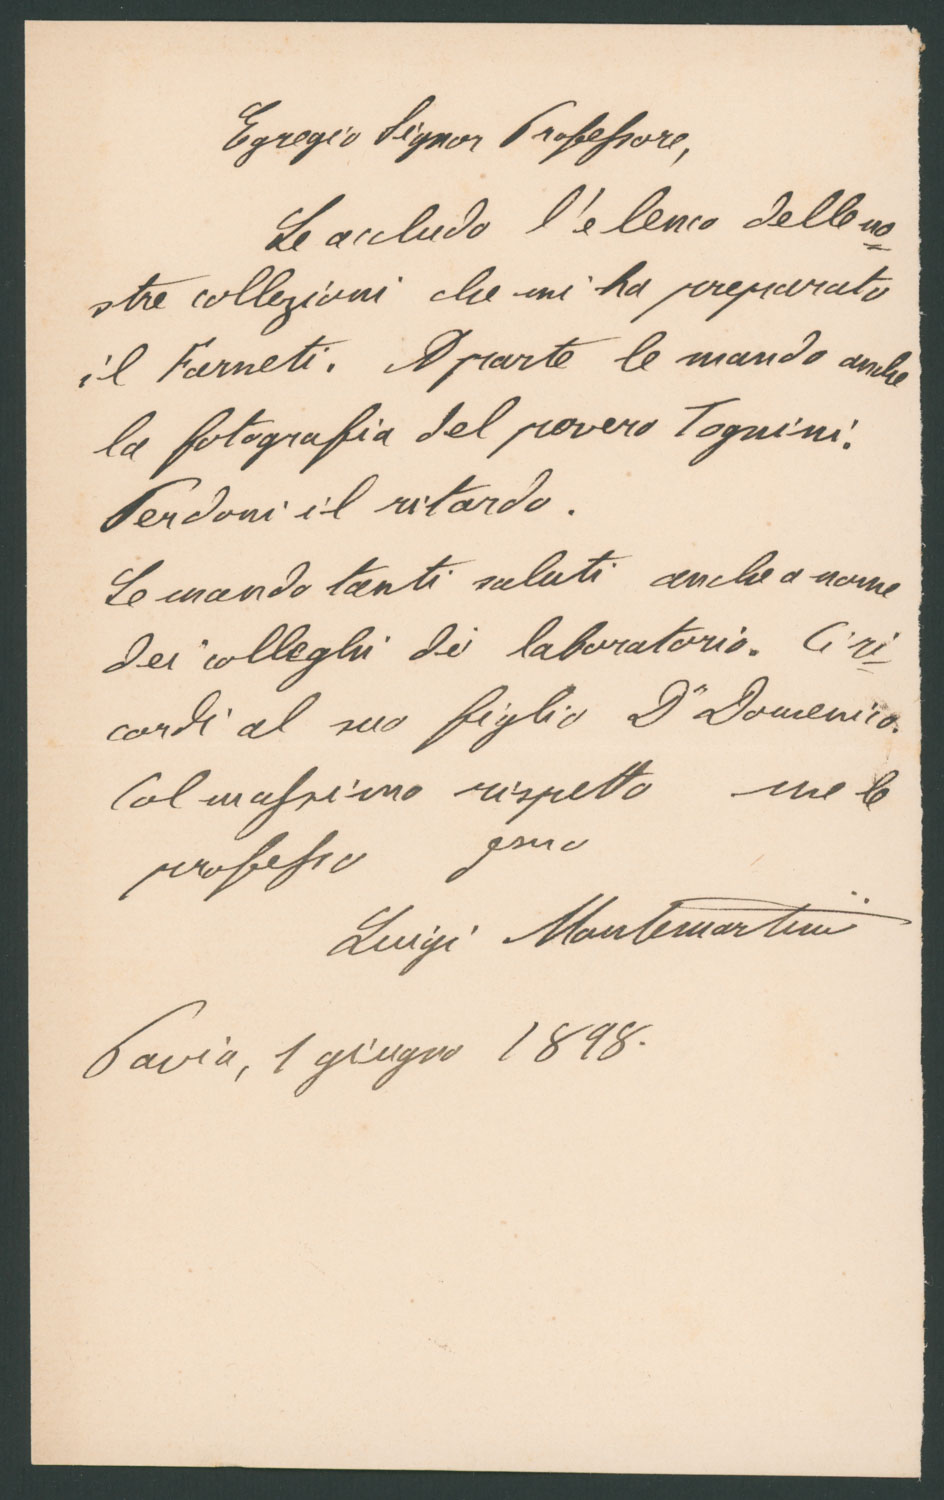 Egregio Signor Professore,
Le accludo l'elenco delle no=
stre collezioni che mi ha preparato
il Farneti. A parte le mando anche
la fotografia del povero Tognini.
Perdoni il ritardo.
Le mando tanti saluti anche a nome
dei colleghi di laboratorio. Ci ri=
cordi al suo figlio Dr Domenico.
Col massimo rispetto me le
professo
Luigi Montemartini
Pavia, 1 giugno 1898.